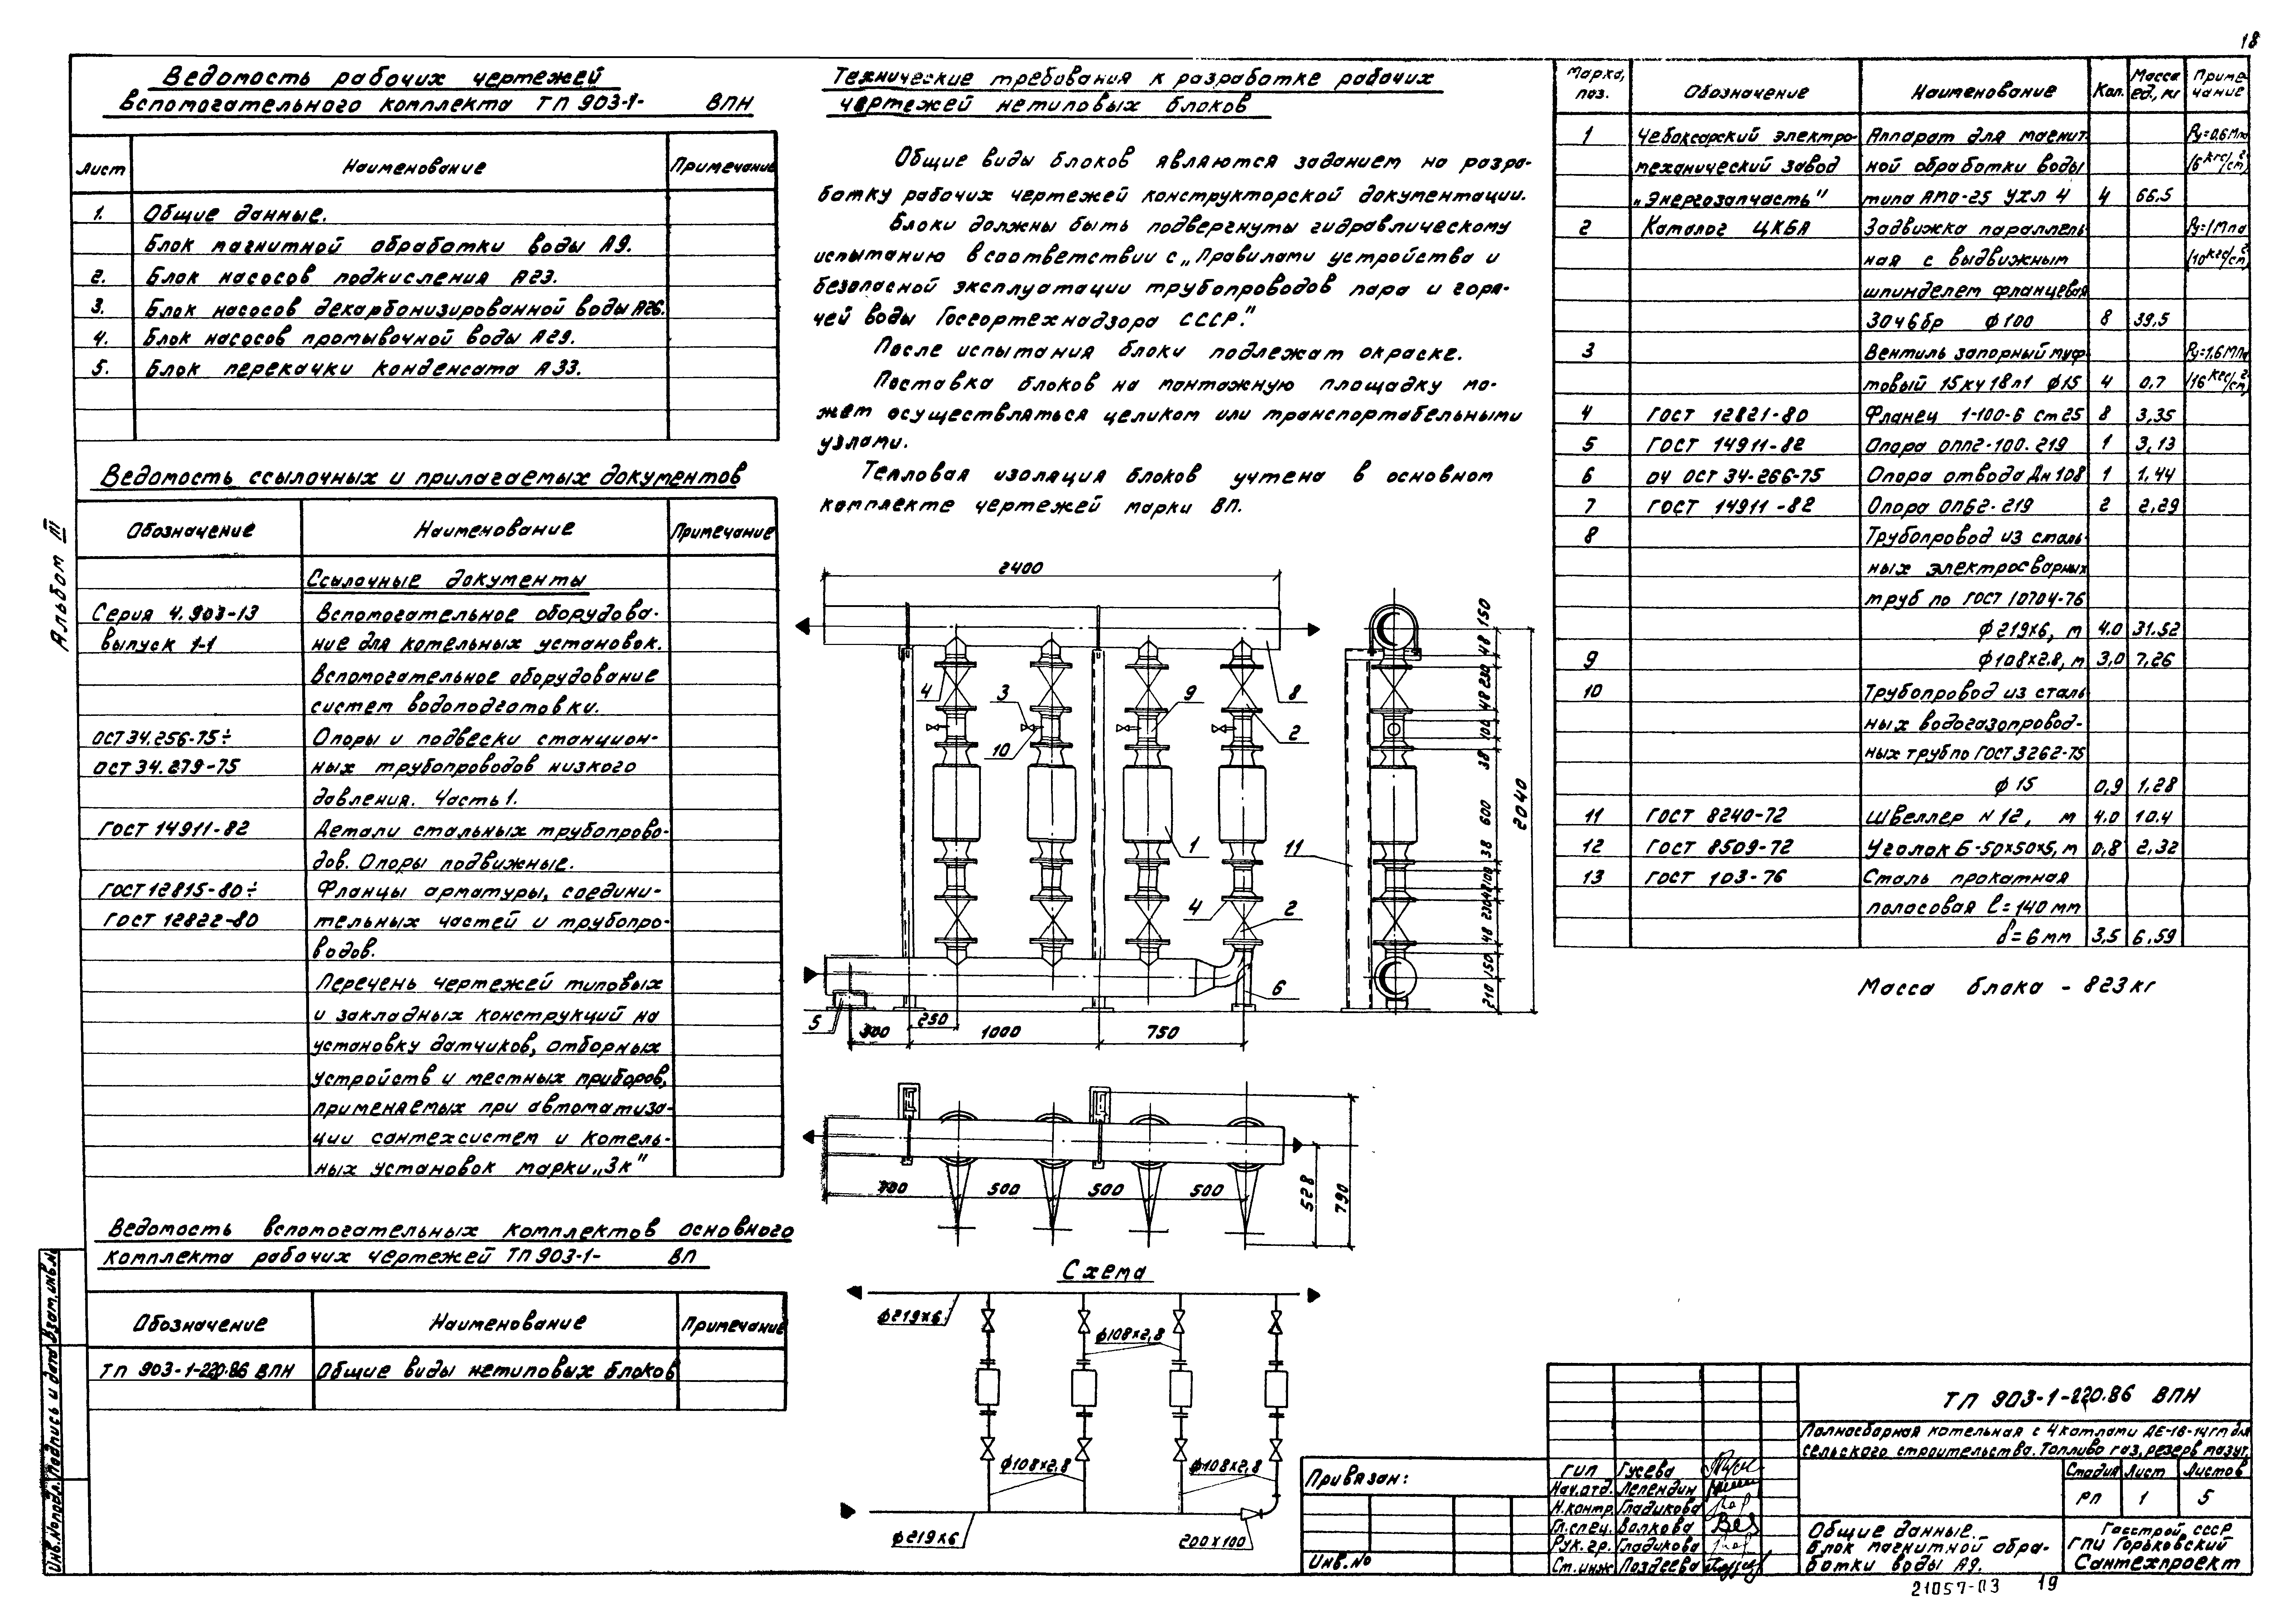 18
Альбом III
Ведомость рабочих чертежей
вспомогательного комплекта ТП 903-1- ВПН
Лист Наименование Примечание
1. Общие данные.
Блок магнитной обработки воды А9.
2. Блок насосов подкисления А23.
3. Блок насосов декарбонизированной воды А26.
4. Блок насосов промывочной воды А29.
5. Блок перекачки конденсата А33.
Ведомость ссылочных и прилагаемых документов
Обозначение Наименование Примечание
Ссылочные документы
Серия 4.903-13 Вспомогательное оборудова-
выпуск 1-1 ние для котельных установок.
Вспомогательное оборудование
систем водоподготовки.
ОСТ 34.256-75÷ Опоры и подвески станцион-
ОСТ 34.279-75 ных трубопроводов низкого
давления. Часть 1.
ГОСТ 14911-82 Детали стальных трубопрово-
дов. Опоры подвижные.
ГОСТ 12815-80÷ Фланцы арматуры, соедини-
ГОСТ 12822-80 тельных частей и трубопро-
водов.
Перечень чертежей типовых
и закладных конструкций на
установку датчиков, отборных
устройств и местных приборов,
применяемых при автоматиза-
ции сантехсистем и котель-
ных установок марки „ЗК"
Ведомость вспомогательных комплектов основного
комплекта рабочих чертежей ТП 903-1- ВП
Обозначение Наименование Примечание
ТП 903-1-220.86 ВПН Общие виды нетиповых блоков
Технические требования к разработке рабочих
чертежей нетиповых блоков
Общие виды блоков являются заданием на разра-
ботку рабочих чертежей конструкторской документации.
Блоки должны быть подвергнуты гидравлическому
испытанию в соответствии с „Правилами устройства и
безопасной эксплуатации трубопроводов пара и горя-
чей воды Госгортехнадзора СССР."
После испытания блоки подлежат окраске.
Поставка блоков на монтажную площадку мо-
жет осуществляться целиком или транспортабельными
узлами.
Тепловая изоляция блоков учтена в основном
комплекте чертежей марки ВП.
2400
4 3 9 8
10 2
1 11
4 2
6
5
300 250 1000 750
150
48
230
48
100
38
600
38
100
48
230
48
150
210
2040
700 500 500 500
528
790
Схема
ф219х6
ф108х2,8
ф108х2,8 ф108х2,8
ф219х6 200х100
Марка, поз. Обозначение Наименование Кол. Масса ед., кг Приме-чание
1 Чебоксарский электро- Аппарат для магнит- Ру=0,6 МПа
механический завод ной обработки воды (6 кгс/см²)
„Энергозапчасть" типа АМО-25 УХЛ 4 4 66,5
2 Каталог ЦКБА Задвижка параллель- Ру=1 МПа
ная с выдвижным (10 кгс/см²)
шпинделем фланцевая
30ч6бр ф100 8 39,5
3 Вентиль запорный муф- Ру=1,6 МПа
товый 15кч18п1 ф15 4 0,7 (16 кгс/см²)
4 ГОСТ 12821-80 Фланец 1-100-6 ст 25 8 3,35
5 ГОСТ 14911-82 Опора ОПП2-100.219 1 3,13
6 04 ОСТ 34-266-75 Опора отвода Дн 108 1 1,44
7 ГОСТ 14911-82 Опора ОПБ2-219 2 2,29
8 Трубопровод из сталь-
ных электросварных
труб по ГОСТ 10704-76
ф219х6, м 4.0 31.52
9 ф108х2.8, м 3,0 7,26
10 Трубопровод из сталь-
ных водогазопровод-
ных труб по ГОСТ 3262-75
ф15 0,9 1,28
11 ГОСТ 8240-72 Швеллер N 12, м 4.0 10.4
12 ГОСТ 8509-72 Уголок Б-50х50х5, м 0,8 2,32
13 ГОСТ 103-76 Сталь прокатная
полосовая ℓ=140 мм
δ=6 мм 3,5 6,59
Масса блока - 823 кг
Инв. № подл. Подпись и дата Взам. инв. №
Привязан:
Инв. №
ГИП Гусева
Нач. отд. Лепендин
Н. контр. Гладикова
Гл. спец. Волкова
Рук. гр. Гладикова
Ст. инж. Поздеева
ТП 903-1-220.86 ВПН
Полносборная котельная с 4 котлами ДЕ-16-14ГМ для
сельского строительства. Топливо газ, резерв мазут.
Стадия Лист Листов
РП 1 5
Общие данные.
Блок магнитной обра-
ботки воды А9.
Госстрой СССР
ГПИ Горьковский
Сантехпроект
21057-03 19